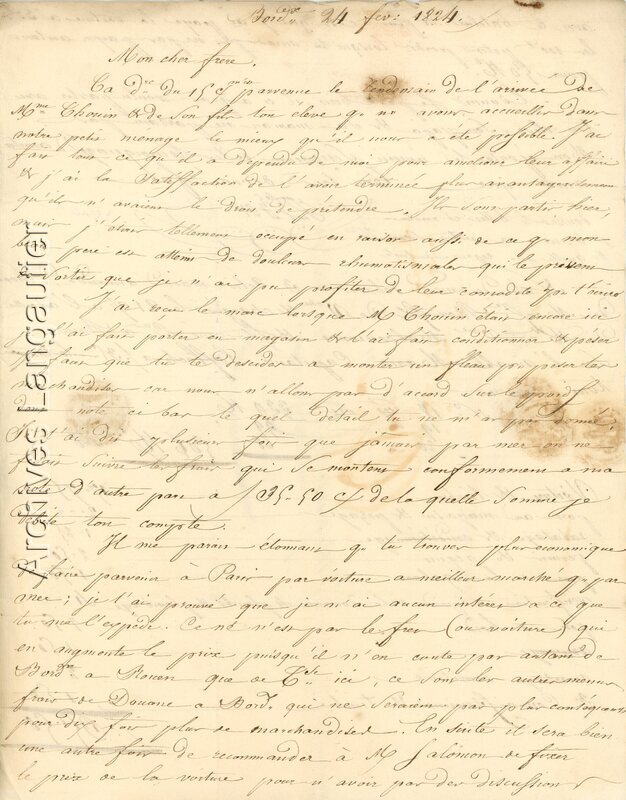 Bord.ˣ 24 fev. 1824.
Mon cher frere,
Ta d.re du 15 c.t m'est parvenue le lendemain de l'arrivée de
M.me Thouin & de son fils ton éleve q. n. avons accueillis dans
notre petit menage le mieux qu'il nous a été possible. J'ai
fait tout ce qu'il a dépendu de moi pour ameliorer leur affaire
& j'ai la satisfaction de l'avoir terminée plus avantageusement
qu'ils n'avaient le droit de prétendre. Ils sont partis hier,
mais j'étais tellement occupé en raison aussi de ce q. mon
beau pere est atteint de douleurs rhumatismales qui le privent
de sortir que je n'ai pu profiter de leur comodité p.r t'écrire
J'ai reçu le marc lorsque M. Thouin était encore ici
je l'ai fait porter en magasin & l'ai fait conditionner & peser
il faut que tu te decides a monter un fleau p.r peser tes
marchandises car nous n'allons pas d'accord sur le poids
note ci bas le quel détail tu ne m'as pas donné
Je t'ai dit plusieurs fois que jamais par mer on ne
suivre les frais qui se montent conformement a ma
note d'autre part a f 135-50 c/ de la quelle somme je
débite ton compte.
Il me parait étonnant q. tu trouves plus economique
de faire parvenir à Paris par voiture a meilleur marché q. par
mer; je t'ai prouvé que je n'ai aucun intérêt a ce que
tu me l'expédie. Ce n'est pas le fret (ou voiture) qui
en augmente le prix puisqu'il n'en coute pas autant de
Bord.x a Rouen que de ici, ce sont les autres menus
frais de Douane a Bord.x qui ne seraient pas plus conséquens
pour dix fois plus de marchandises. En suite il sera bien
une autre fois de recommander à M. Salomon de fixer
le prix de la voiture pour n'avoir pas des discussions
Archives Langautier